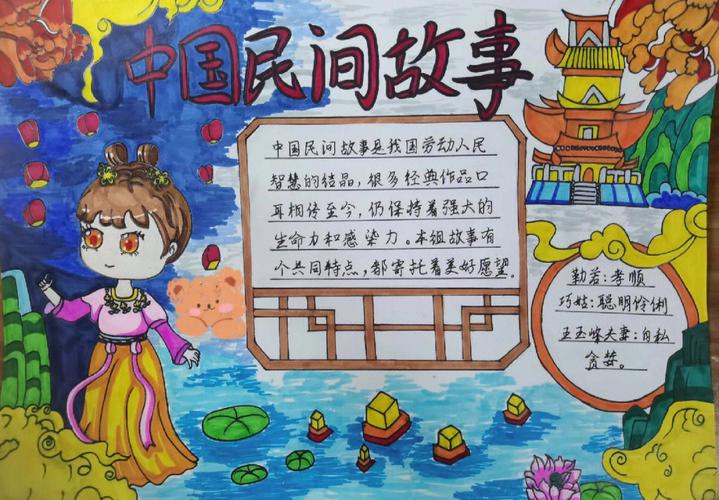 中国民间故事
中国民间故事是我国劳动人民
智慧的结晶,很多经典作品口
耳相传至今,仍保持着强大的
生命力和感染力。本组故事有
个共同特点,都寄托着美好愿望。
勤若:孝顺
巧姑:聪明伶俐
王玉峰夫妻:自私
贪婪。